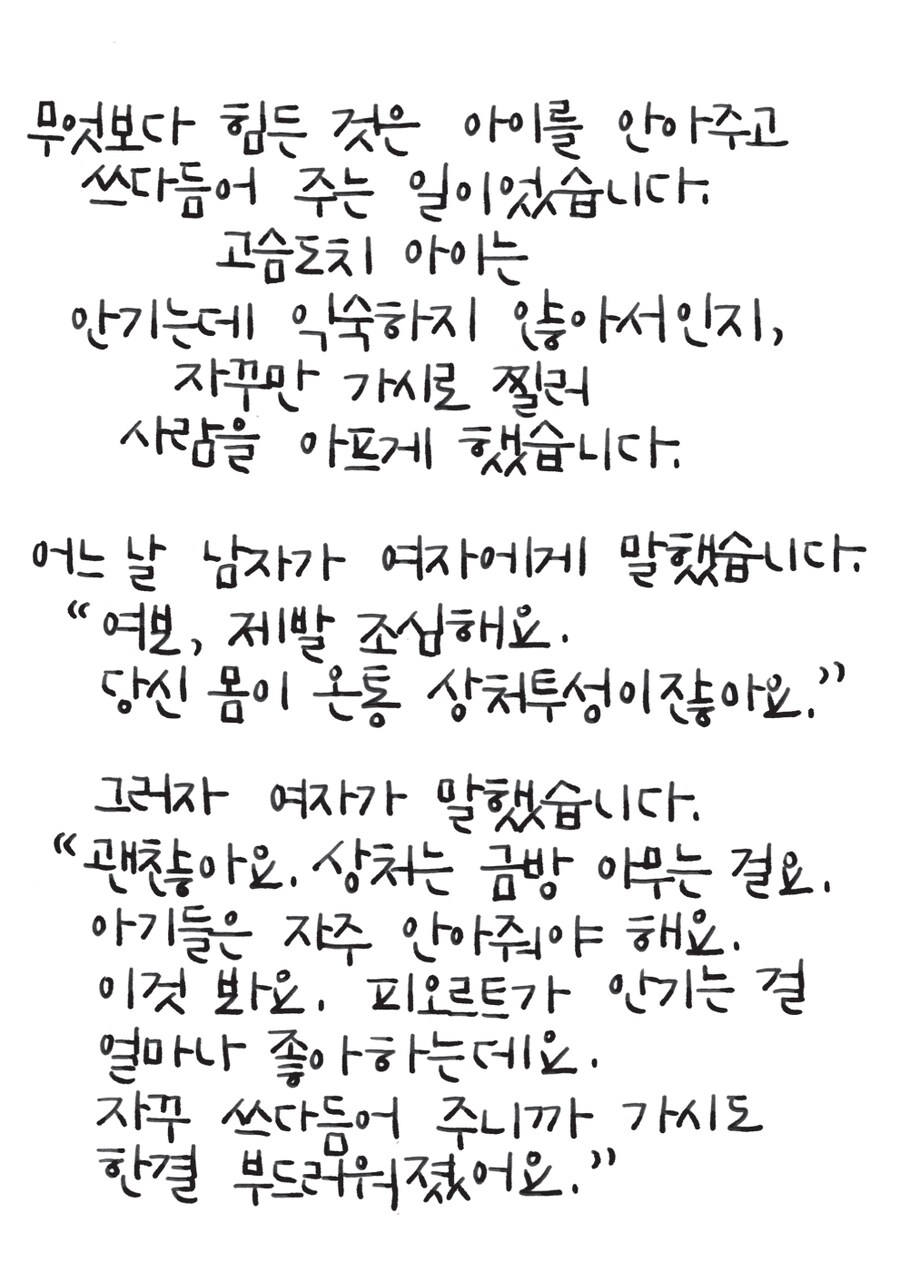 무엇보다 힘든 것은 아이를 안아주고
쓰다듬어 주는 일이었습니다.
고슴도치 아이는
안기는데 익숙하지 않아서인지,
자꾸만 가시로 찔러
사람을 아프게 했습니다.
어느 날 남자가 여자에게 말했습니다.
“여보, 제발 조심해요.
당신 몸이 온통 상처투성이잖아요.”
그러자 여자가 말했습니다.
“괜찮아요. 상처는 금방 아무는 걸요.
아기들은 자주 안아줘야 해요.
이것 봐요. 피오르트가 안기는 걸
얼마나 좋아하는데요.
자꾸 쓰다듬어 주니까 가시도
한결 부드러워졌어요.”